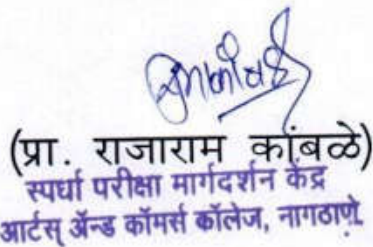 (प्रा. राजाराम कोंबळे)
स्पर्धा परीक्षा मार्गदर्शन केंद्र
आर्टस् ॲन्ड कॉमर्स कॉलेज, नागठाणे